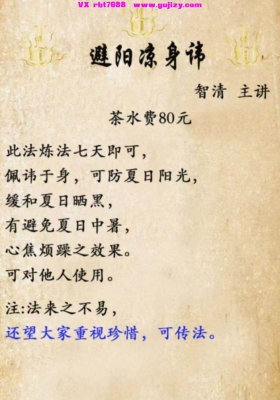 VX rbt7688  www.gujizy.com
避阳凉身讳
智清 主讲
茶水费80元
此法炼法七天即可，
佩讳于身，可防夏日阳光，
缓和夏日晒黑，
有避免夏日中暑，
心焦烦躁之效果。
可对他人使用。
注:法来之不易，
还望大家重视珍惜，可传法。